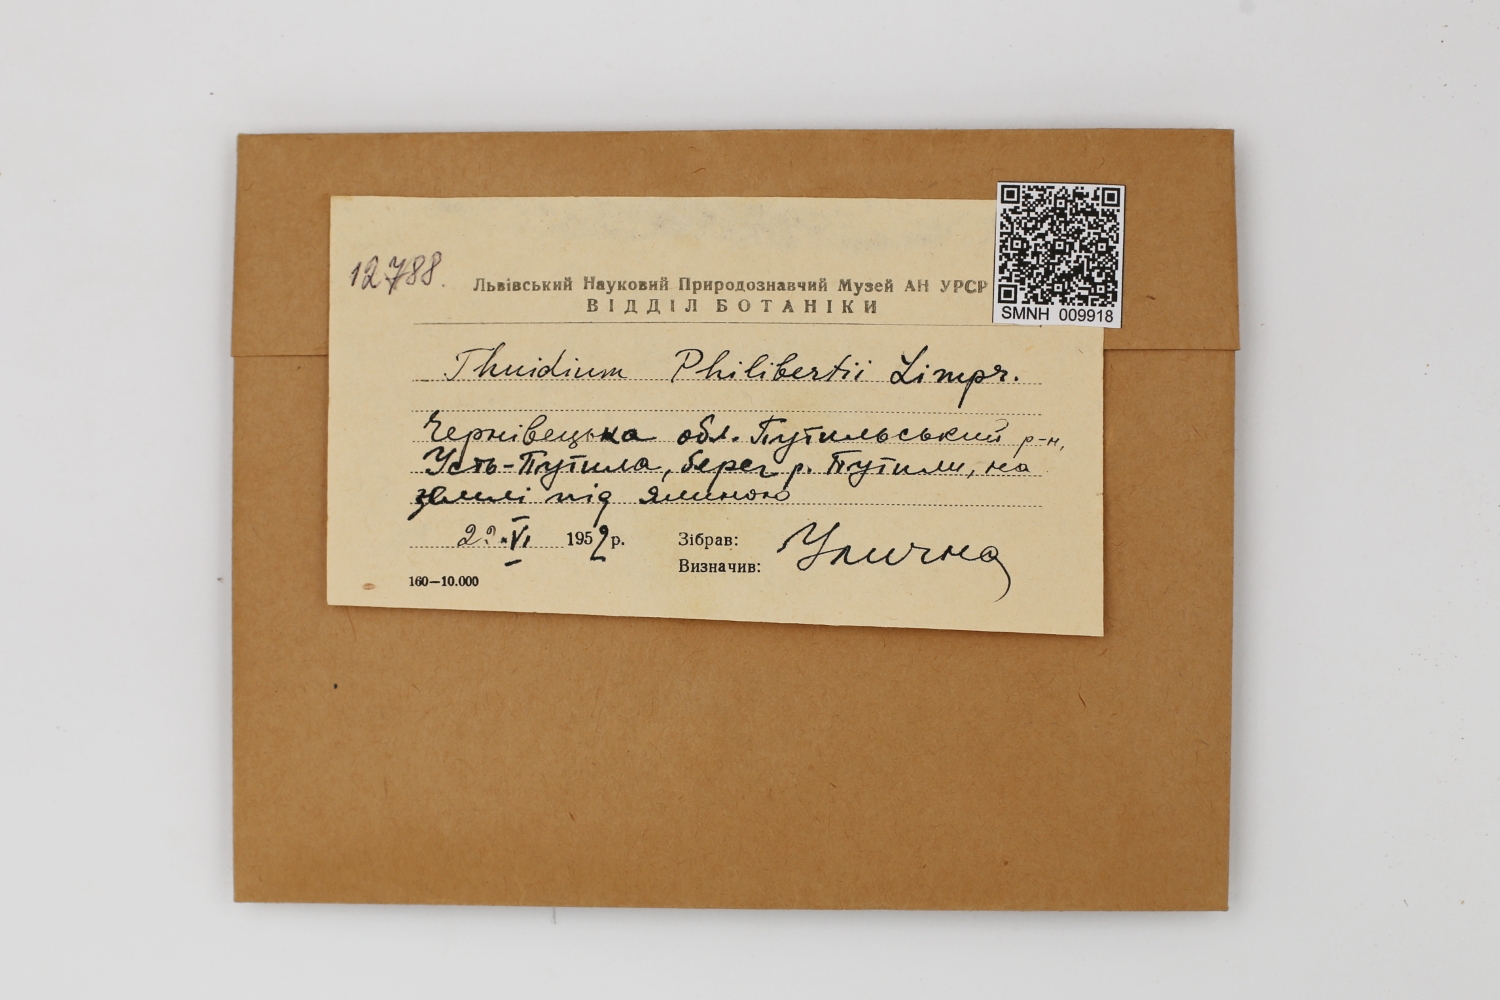 12788.
Львівський Науковий Природознавчий Музей АН УРСР
ВІДДІЛ БОТАНІКИ
SMNH 009918
Thuidium Philibertii Limpr.
Чернівецька обл. Путильський р-н,
Усть-Путила, берег р. Путили, на
землі під ялиною
VI 1952 р.
Зібрав: Улична
Визначив:
160—10.000